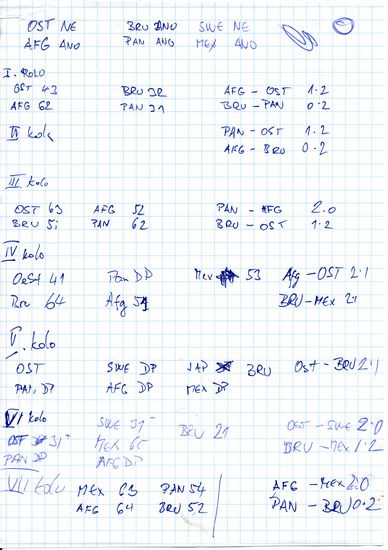 OST NE BRU ANO SWE NE
AFG ANO PAN ANO MEX ANO
I. kolo
OST 43 BRU 32 AFG - OST 1:2
AFG 62 PAN 31 BRU - PAN 0:2
II kolo PAN - OST 1:2
AFG - BRU 0:2
III. kolo
OST 63 AFG 52 PAN - AFG 2:0
BRU 51 PAN 62 BRU - OST 1:2
IV kolo
Ost 41 Pan DP Mex 53 Afg - OST 2:1
Bru 64 Afg 51 BRU - MEX 2:1
V. kolo
OST SWE DP JAP BRU Ost - BRU 2:1
PAN DP AFG DP MEX DP
VI kolo SWE 31 BRU 21 OST - SWE 2:0
OST 31 MEX 65 BRU - MEX 1:2
PAN DP AFG DP
VII kolo MEX 63 PAN 54 AFG - MEX 2:0
AFG 64 BRU 52 PAN - BRU 0:2